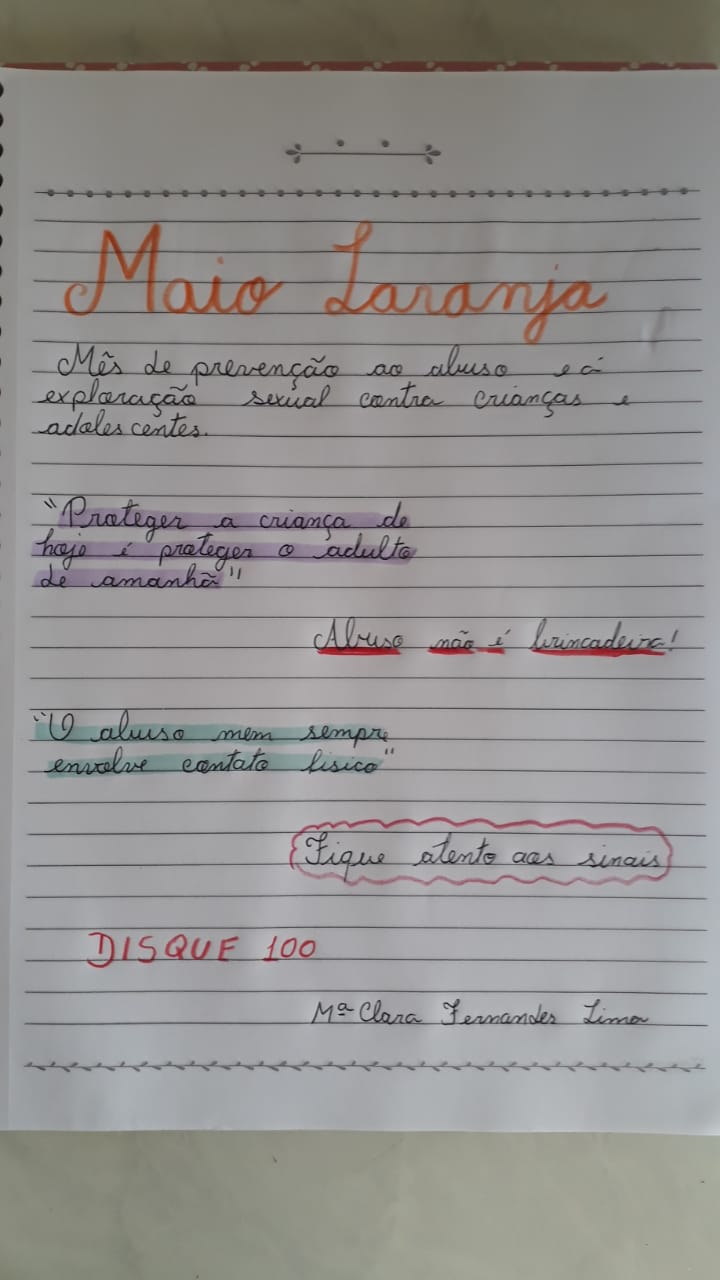 Maio Laranja
Mês de prevenção ao abuso e á
exploração sexual contra crianças e
adolescentes.
"Proteger a criança de
hoje é proteger o adulto
de amanhã"
Abuso não é brincadeira!
"O abuso nem sempre
envolve contato físico"
Fique atento aos sinais
DISQUE 100
Mª Clara Fernandes Lima